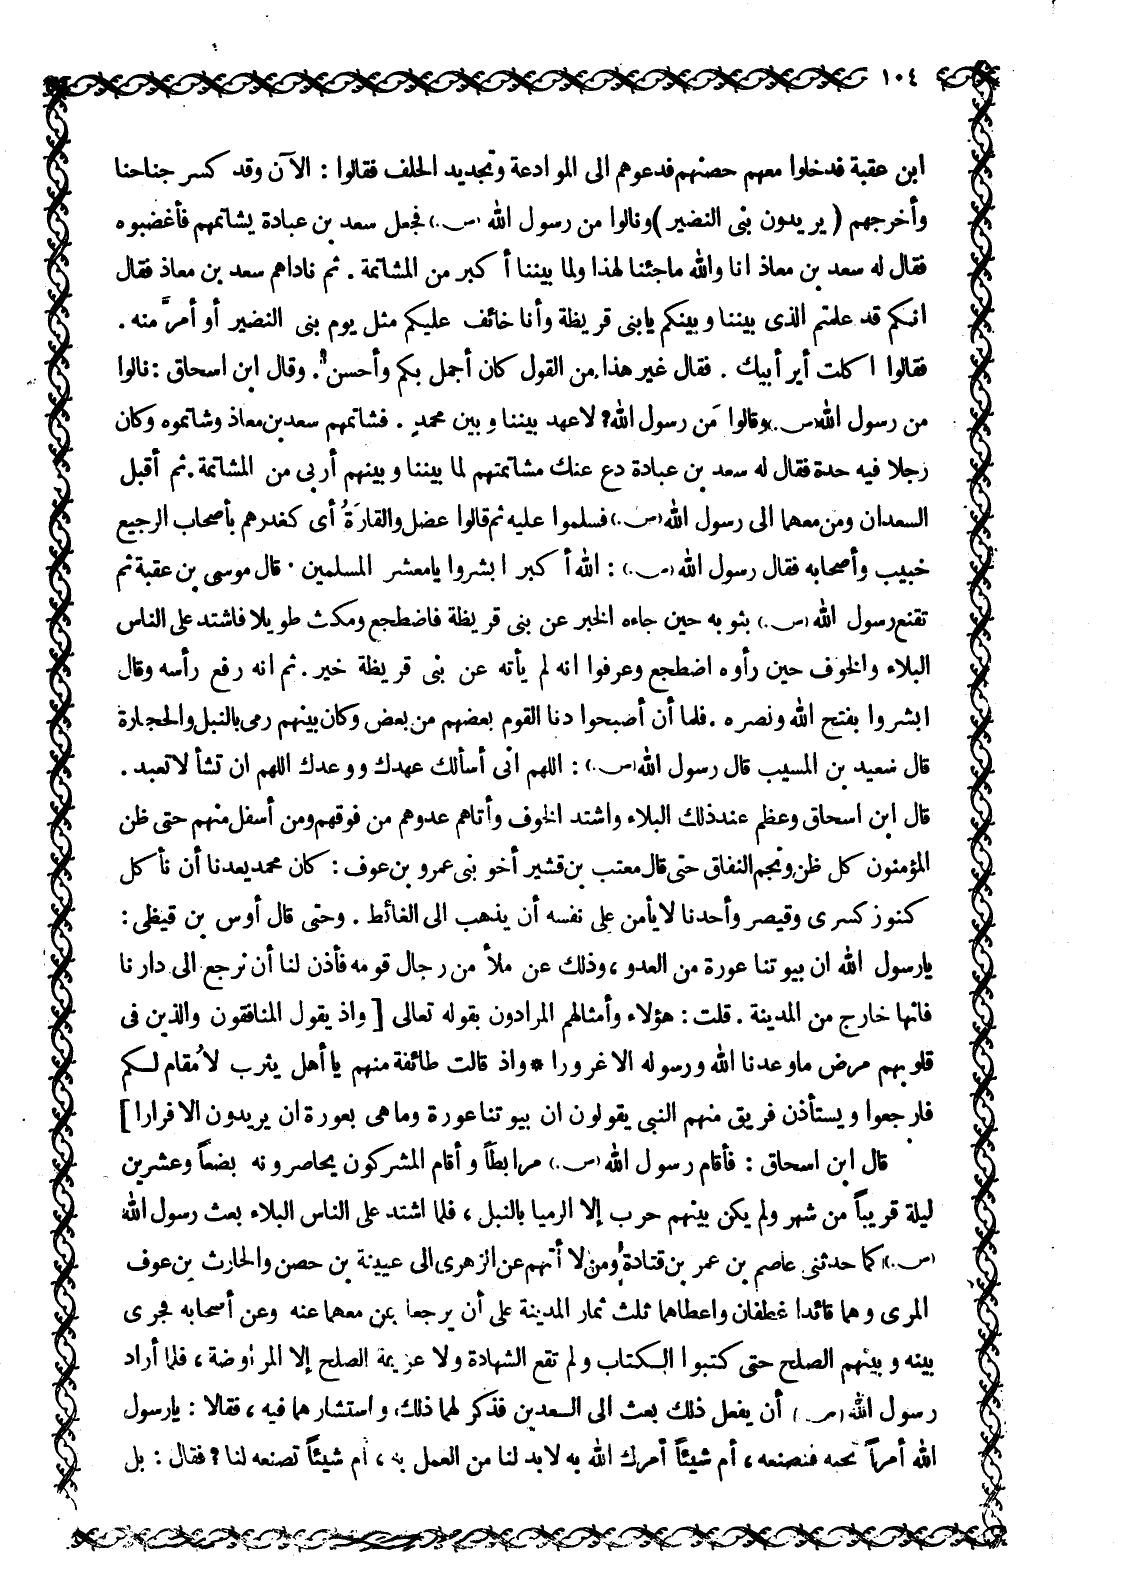 ١٠٤
ابن عقبة فدخلوا معهم حصنهم فدعوهم الى الموادعة وتجديد الحلف فقالوا : الآن وقد كسر جناحنا
وأخرجهم ( يريدون بنى النضير ) ونالوا من رسول الله (ص.) فجعل سعد بن عبادة يشاتمهم فأغضبوه
فقال له سعد بن معاذ انا والله ماجئنا لهذا ولما بيننا أكبر من المشاتمة . ثم ناداهم سعد بن معاذ فقال
انكم قد علمتم الذى بيننا وبينكم يابنى قريظة وأنا خائف عليكم مثل يوم بنى النضير أو أمرَّ منه .
فقالوا اكلت أير أبيك . فقال غير هذا من القول كان أجمل بكم وأحسن . وقال ابن اسحاق : نالوا
من رسول الله (ص.) وقالوا مَن رسول الله؟ لاعهد بيننا وبين محمد . فشاتمهم سعد بن معاذ وشاتموه وكان
رجلا فيه حدة فقال له سعد بن عبادة دع عنك مشاتمتهم لما بيننا وبينهم أربى من المشاتمة . ثم أقبل
السعدان ومن معهما الى رسول الله (ص.) فسلموا عليه ثم قالوا عضل والقارَةُ أى كغدرهم بأصحاب الرجيع
خبيب وأصحابه فقال رسول الله (ص.) : الله أكبر ابشروا يامعشر المسلمين . قال موسى بن عقبة ثم
تقنع رسول الله (ص.) بثوبه حين جاءه الخبر عن بنى قريظة فاضطجع ومكث طويلا فاشتد على الناس
البلاء والخوف حين رأوه اضطجع وعرفوا انه لم يأته عن بنى قريظة خير . ثم انه رفع رأسه وقال
ابشروا بفتح الله ونصره . فلما أن أصبحوا دنا القوم بعضهم من بعض وكان بينهم رمى بالنبل والحجارة
قال سعيد بن المسيب قال رسول الله (ص.) : اللهم انى أسألك عهدك ووعدك اللهم ان تشأ لا تعبد .
قال ابن اسحاق وعظم عند ذلك البلاء واشتد الخوف وأتاهم عدوهم من فوقهم ومن أسفل منهم حتى ظن
المؤمنون كل ظن ونجم النفاق حتى قال معتب بن قشير أخو بنى عمرو بن عوف : كان محمد يعدنا أن نأكل
كنوز كسرى وقيصر وأحدنا لا يأمن على نفسه أن يذهب الى الغائط . وحتى قال أوس بن قيظى :
يارسول الله ان بيوتنا عورة من العدو ، وذلك عن ملأ من رجال قومه فأذن لنا أن نرجع الى دارنا
فانها خارج من المدينة . قلت : هؤلاء وأمثالهم المرادون بقوله تعالى [ واذ يقول المنافقون والذين فى
قلوبهم مرض ماوعدنا الله ورسوله الا غرورا * واذ قالت طائفة منهم يا أهل يثرب لا مُقام لكم
فارجعوا ويستأذن فريق منهم النبى يقولون ان بيوتنا عورة وما هى بعورة ان يريدون الا فرارا ]
قال ابن اسحاق : فأقام رسول الله (ص.) مرابطاً وأقام المشركون يحاصرونه بضعاً وعشرين
ليلة قريباً من شهر ولم يكن بينهم حرب إلا الرميا بالنبل ، فلما اشتد على الناس البلاء بعث رسول الله
(ص.) كما حدثنى عاصم بن عمر بن قتادة ومن لا أتهم عن الزهرى الى عيينة بن حصن والحارث بن عوف
المرى وهما قائدا غطفان واعطاهما ثلث ثمار المدينة على أن يرجعا بمن معهما عنه وعن أصحابه فجرى
بينه وبينهم الصلح حتى كتبوا الكتاب ولم تقع الشهادة ولا عزيمة الصلح إلا المراوضة ، فلما أراد
رسول الله (ص) أن يفعل ذلك بعث الى السعدين فذكر لهما ذلك واستشارهما فيه ، فقالا : يارسول
الله أمراً تحبه فنصنعه ، أم شيئاً أمرك الله به لابد لنا من العمل به ، أم شيئاً تصنعه لنا ؟ فقال : بل